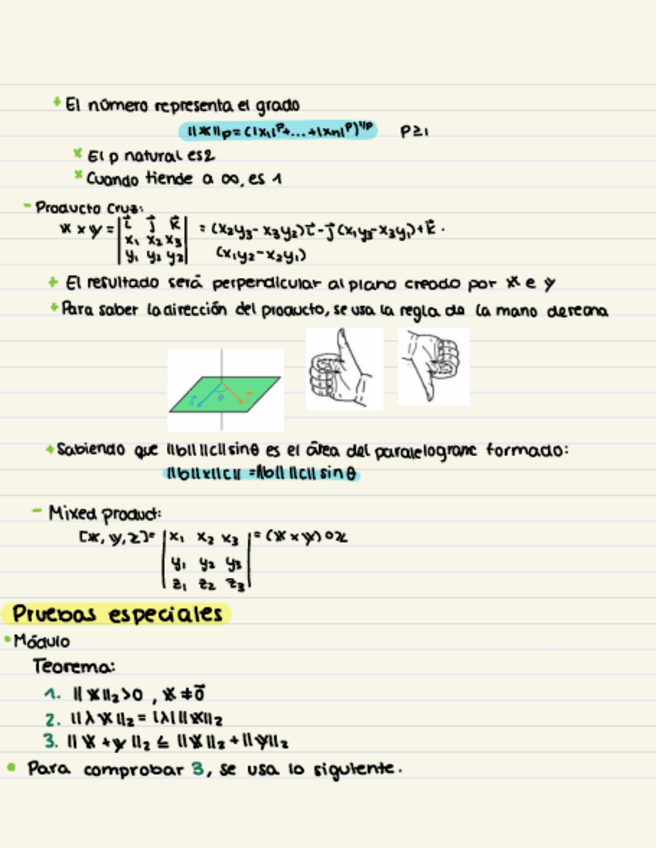 + El número representa el grado
||x||p = (|x₁|ᵖ+...+|xn|ᵖ)^1/p P≥1
× El p natural es 2
× Cuando tiende a ∞, es 1
- Producto Cruz:
x × y = | i⃗ j⃗ k⃗ | = (x₂y₃ - x₃y₂)i⃗ - j⃗(x₁y₃ - x₃y₁) + k⃗ ·
| x₁ x₂ x₃ |
| y₁ y₂ y₃ | (x₁y₂ - x₂y₁)
+ El resultado será perpendicular al plano creado por x e y
+ Para saber la dirección del producto, se usa la regla de la mano derecha
θ
+ Sabiendo que ||b|| ||c|| sinθ es el área del paralelogramo formado:
||b||x||c|| = ||b|| ||c|| sin θ
- Mixed product:
[x, y, z] = | x₁ x₂ x₃ | = (x × y) o z
| y₁ y₂ y₃ |
| z₁ z₂ z₃ |
Pruebas especiales
• Módulo
Teorema:
1. ||x||₂ > 0 , x ≠ 0⃗
2. ||λx||₂ = |λ| ||x||₂
3. ||x + y||₂ ≤ ||x||₂ + ||y||₂
• Para comprobar 3, se usa lo siguiente.